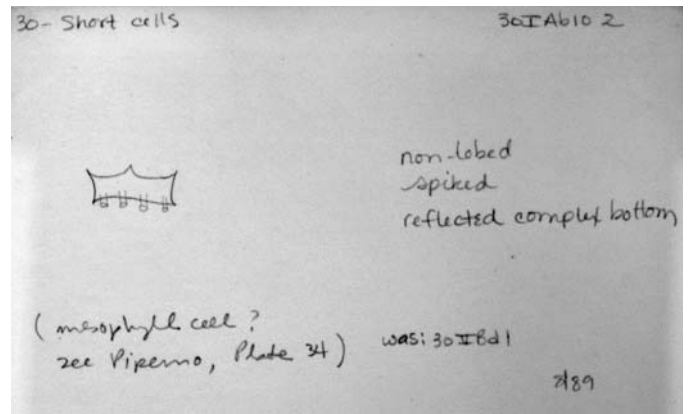 30- Short cells
30IAb10 2
non-lobed
spiked
reflected complex bottom
(mesophyll cell?
see Piperno, Plate 34)
was: 30IIBd1
2/89